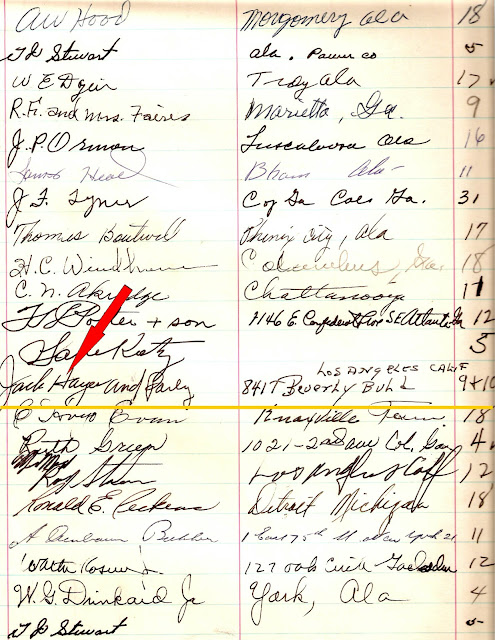 AW Hood Montgomery ala 18
T J Stewart ala. Power co 5
W E Troy ala 17
R.F. and Mrs. Faires Marietta, Ga. 9
J.P. Orman Tuscaloosa ala 16
Neal Bham ala- 11
J. F. Tyner Ga. 31
Thomas Boutwell Phenix City, ala 17
H.C. Windham Columbus, Ga. 18
C. N. Akridge Chattanooga 11
+ son 2146 E. Confederate Ave SE Atlanta Ga 12
Katz 5
LOS ANGELES CALIF
Jack Hayes and Party 8417 Beverly Bulv 9+10
Evans Knoxville Tenn 18
Ruth Green 1021-2nd ave Col. Ga 4
Mr Mrs
Roy Los Angeles Calif 12
Ronald E. Detroit Michigan 18
A 1 East 75th St New York 21 11
Walter Jr. 127 oak Circle Gadsden 12
W.G. Drinkard Jr York, Ala 4
T J Stewart 5